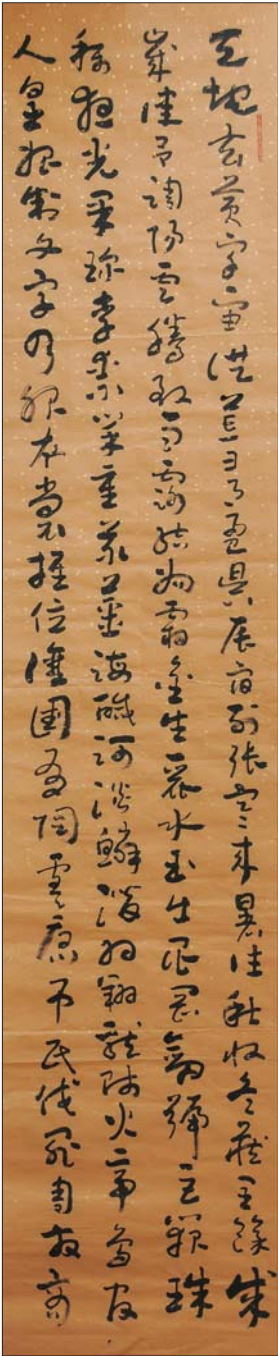 天地玄黃宇宙洪荒日月盈昃辰宿列張寒來暑往秋收冬藏閏餘成
歲律呂調陽雲騰致雨露結為霜金生麗水玉出崑岡劍號巨闕珠
稱夜光果珍李柰菜重芥薑海鹹河淡鱗潛羽翔龍師火帝鳥官
人皇始制文字乃服衣裳推位讓國有陶虞唐弔民伐罪周發商